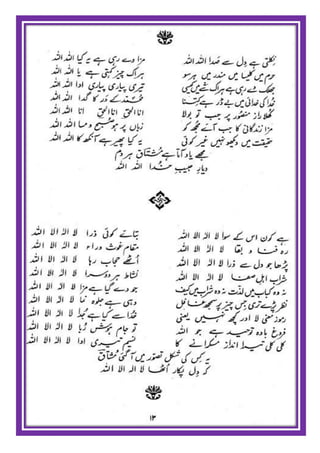 نکلتی ہے دل سے صدا اللہ اللہ مزا دے رہی ہے یہ کیا اللہ اللہ
حرم میں کلیسا میں مندر میں ہر سو ہر اک چیز کہتی ہے یا اللہ اللہ
ہر اک شے میں کیسی تیری پیاری پیاری ادا اللہ اللہ
خدا کی خدائی میں بے ڈر ہے کتنا محمد کے در کا گدا اللہ اللہ
کھلا راز منصور پر جب تو بولا انا الحق انا الحق انا اللہ اللہ
مزا زندگانی کا جب آئے مجھ کو زباں پر ہو صبح و مسا اللہ اللہ
حقیقت میں دیکھو نہیں غیر کوئی یہ کیا پھیر ہے آنکھ کا اللہ اللہ
مجھے یاد آتا ہے مشتاق ہر دم
دیار حبیب خدا اللہ اللہ
ہے کون اس کے سوا لا الہ الا اللہ بتائے کوئی ذرا لا الہ الا اللہ
رہ فنا و بقا لا الہ الا اللہ مقام غوث وراء لا الہ الا اللہ
پڑھا جو دل سے ذرا لا الہ الا اللہ اٹھے حجاب رہا لا الہ الا اللہ
شراب اہل صفا لا الہ الا اللہ نشاط ہر دوسرا لا الہ الا اللہ
نہ وہ کباب میں لذت نہ وہ شراب میں کیف جو دے گیا ہے مزا لا الہ الا اللہ
نظر پڑے تری جس چیز پر سمجھ غافل وہی ہے جلوہ نما لا الہ الا اللہ
رموز معنی لا اور کچھ نہیں یعنی خدا سے کیا ہے جدا لا الہ الا اللہ
فروغ بادہ توحید ہے جو اللہ تو جام ہوش ربا لا الہ الا اللہ
کلی کلی تیرا انداز مسکرانے کا نسیم تیری ادا لا الہ الا اللہ
یہ کس کی شکل تصور میں آ گئی مشتاق
کہ دل پکار اٹھا لا الہ الا اللہ
۱۳